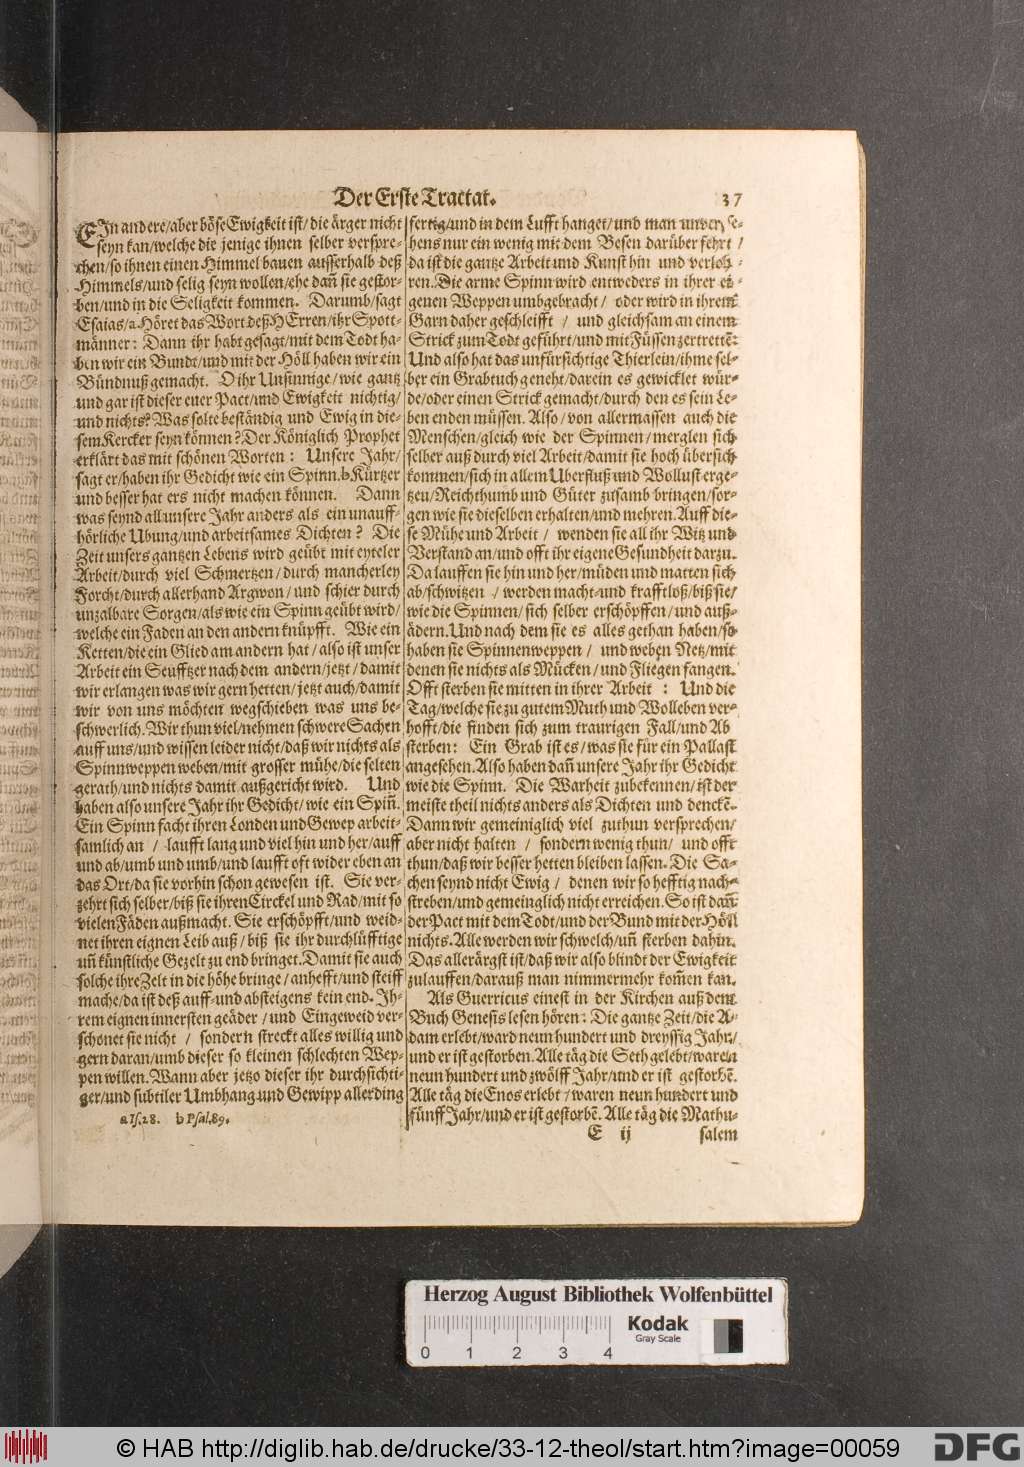 Der Erste Tractat. 37
EIn andere/aber böse Ewigkeit ist/die ärger nicht
seyn kan/welche die jenige ihnen selber verspre-
chen/so ihnen einen Himmel bauen ausserhalb deß
Himmels/und selig seyn wollen/ehe dañ sie gestor-
ben/und in die Seligkeit kommen. Darumb/sagt
Esaias/a Höret das Wort deß HErren/ihr Spott-
männer: Dann ihr habt gesagt/mit dem Todt ha-
ben wir ein Bundt/und mit der Höll haben wir ein
Bündnuß gemacht. O ihr Unsinnige/wie gantz
und gar ist dieser euer Pact/und Ewigkeit nichtig/
und nichts? Was solte beständig und Ewig in die-
sem Kercker seyn können? Der Königlich Prophet
erklärt das mit schönen Worten: Unsere Jahr/
sagt er/haben ihr Gedicht wie ein Spinn. b Kürtzer
und besser hat ers nicht machen können. Dann
was seynd all unsere Jahr anders als ein unauff-
hörliche Ubung/und arbeitsames Dichten? Die
Zeit unsers gantzen Lebens wird geübt mit eyteler
Arbeit/durch viel Schmertzen/durch mancherley
Forcht/durch allerhand Argwon/und schier durch
unzalbare Sorgen/als wie ein Spinn geübt wird/
welche ein Faden an den andern knüpfft. Wie ein
Ketten/die ein Glied am andern hat/also ist unser
Arbeit ein Seufftzer nach dem andern/jetzt/damit
wir erlangen was wir gern hetten/jetzt auch/damit
wir von uns möchten wegschieben was uns be-
schwerlich. Wir thun viel/nehmen schwere Sachen
auff uns/und wissen leider nicht/daß wir nichts als
Spinnweppen weben/mit grosser mühe/die selten
gerath/und nichts damit außgericht wird. Und
haben also unsere Jahr ihr Gedicht/wie ein Spiñ.
Ein Spinn facht ihren Londen und Gewep arbeit-
samlich an / laufft lang und viel hin und her/auff
und ab/umb und umb/und laufft oft wider eben an
das Ort/da sie vorhin schon gewesen ist. Sie ver-
zehrt sich selber/biß sie ihren Circkel und Rad/mit so
vielen Fäden außmacht. Sie erschöpfft/und weid-
net ihren eignen Leib auß/biß sie ihr durchlüfftige
uñ künstliche Gezelt zu end bringet. Damit sie auch
solche ihre Zelt in die höhe bringe/anhefft/und steiff
mache/da ist deß auff-und absteigens kein end. Ih-
rem eignen innersten geäder/und Eingeweid ver-
schonet sie nicht / sondern streckt alles willig und
gern daran/umb dieser so kleinen schlechten Wep-
pen willen. Wann aber jetzo dieser ihr durchsichti-
ger/und subtiler Umbhang und Gewipp allerding
a Is. 28. b Psal. 89.
fertig/und in dem Lufft hanget/und man unverse-
hens nur ein wenig mit dem Besen darüber fehrt /
da ist die gantze Arbeit und Kunst hin und verloh-
ren. Die arme Spinn wird entweders in ihrer ei-
genen Weppen umbgebracht / oder wird in ihrem
Garn daher geschleifft / und gleichsam an einem
Strick zum Todt geführt/und mit Füssen zertrettẽ:
Und also hat das unfürsichtige Thierlein/ihme sel-
ber ein Grabtuch geneht/darein es gewicklet wür-
de/oder einen Strick gemacht/durch den es sein Le-
ben enden müssen. Also/von allermassen auch die
Menschen/gleich wie der Spinnen/merglen sich
selber auß durch viel Arbeit/damit sie hoch übersich
kommen/sich in allem Uberfluß und Wollust erge-
tzen/Reichthumb und Güter zusamb bringen/sor-
gen wie sie dieselben erhalten/und mehren. Auff die-
se Mühe und Arbeit / wenden sie all ihr Witz und
Verstand an/und offt ihr eigene Gesundheit darzu.
Da lauffen sie hin und her/müden und matten sich
ab/schwitzen / werden macht-und krafftloß/biß sie/
wie die Spinnen/sich selber erschöpffen/und auß-
ädern. Und nach dem sie es alles gethan haben/so
haben sie Spinnenweppen / und weben Netz/mit
denen sie nichts als Mücken/und Fliegen fangen.
Offt sterben sie mitten in ihrer Arbeit : Und die
Tag/welche sie zu gutem Muth und Wolleben ver-
hofft/die finden sich zum traurigen Fall/und Ab
sterben: Ein Grab ist es/was sie für ein Pallast
angesehen. Also haben dañ unsere Jahr ihr Gedicht
wie die Spinn. Die Warheit zubekennen/ist der
meiste theil nichts anders als Dichten und denckẽ.
Dann wir gemeiniglich viel zuthun versprechen/
aber nicht halten / sondern wenig thun/ und offt
thun/daß wir besser hetten bleiben lassen. Die Sa-
chen seynd nicht Ewig / denen wir so hefftig nach-
streben/und gemeinglich nicht erreichen. So ist dañ
der Pact mit dem Todt/und der Bund mit der Höll
nichts. Alle werden wir schwelch/uñ sterben dahin.
Das allerärgst ist/daß wir also blindt der Ewigkeit
zulauffen/darauß man nimmermehr kom̃en kan.
Als Guerricus einest in der Kirchen auß dem
Buch Genesis lesen hören: Die gantze Zeit/die A-
dam erlebt/ward neun hundert und dreyssig Jahr/
und er ist gestorben. Alle täg die Seth gelebt/waren
neun hundert und zwölff Jahr/und er ist gestorbẽ.
Alle täg die Enos erlebt/waren neun hundert und
fünff Jahr/und er ist gestorbẽ. Alle täg die Mathu-
E ij salem
Herzog August Bibliothek Wolfenbüttel
0 1 2 3 4
Kodak
Gray Scale
© HAB http://diglib.hab.de/drucke/33-12-theol/start.htm?image=00059
DFG